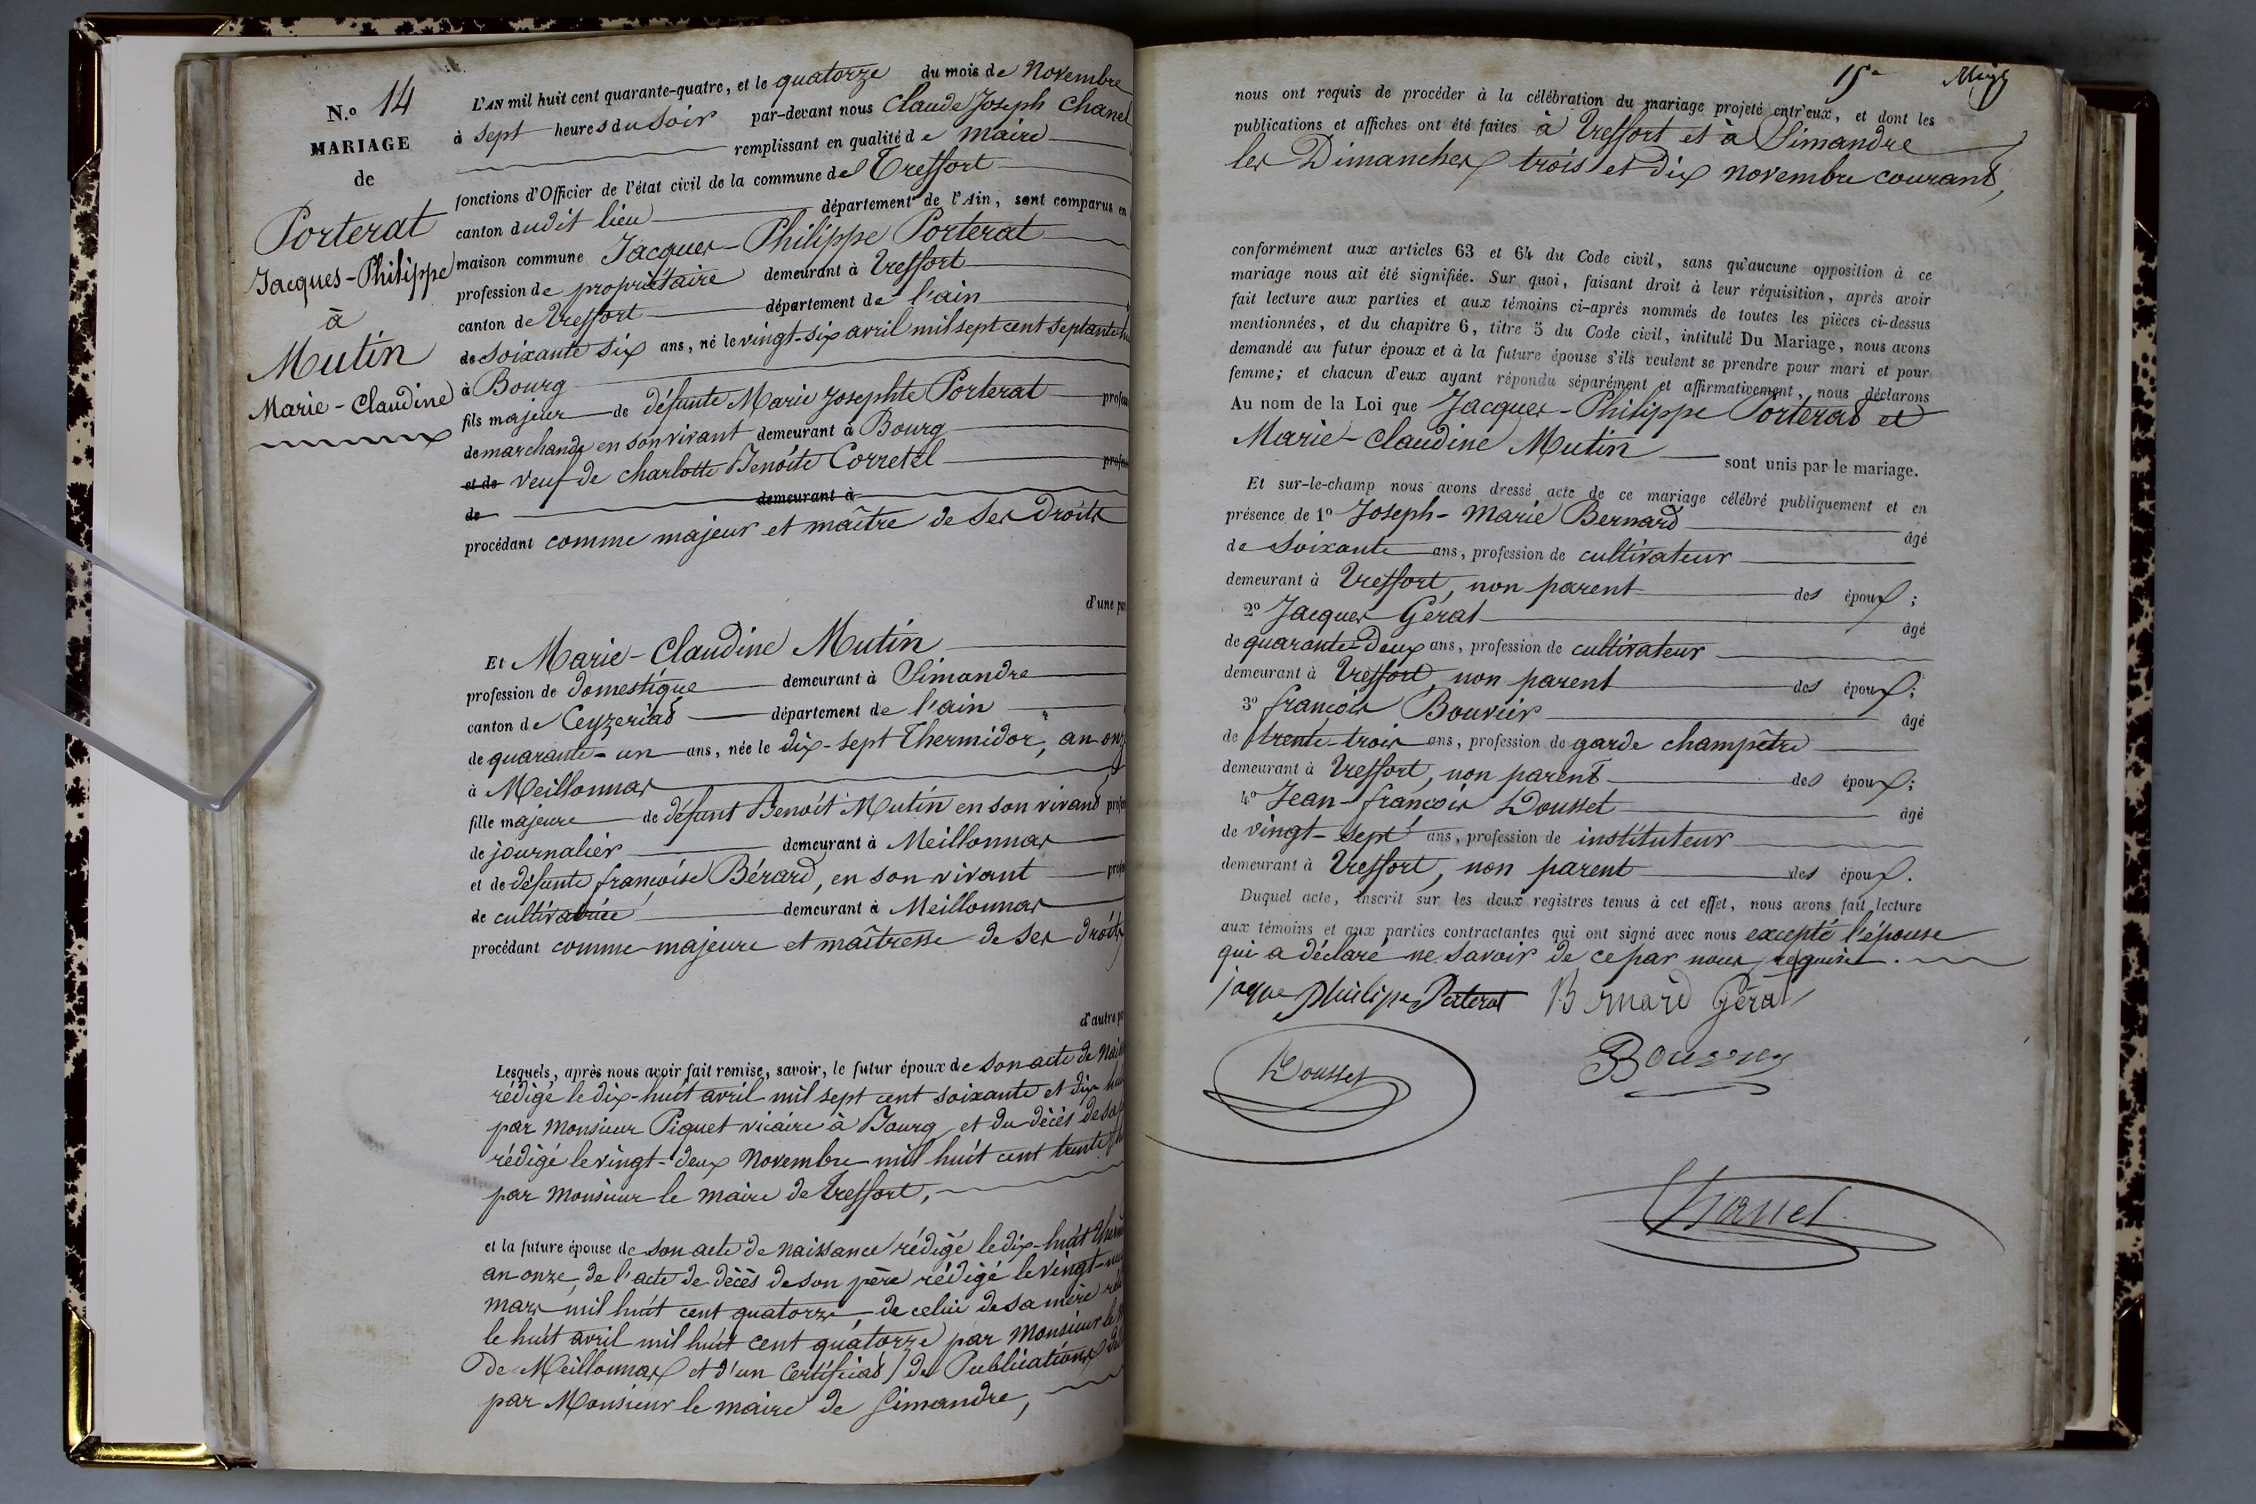 N.o 14
MARIAGE
de
Porterat
Jacques-Philippe
à
Mutin
Marie-Claudine
L'AN mil huit cent quarante-quatre, et le quatorze du mois de Novembre
à sept heures du soir par-devant nous Claude Joseph Chanel
remplissant en qualité de maire
fonctions d'Officier de l'état civil de la commune de Treffort
canton dudit lieu département de l'Ain, sont comparus en
maison commune Jacques-Philippe Porterat
profession de propriétaire demeurant à Treffort
canton de Treffort département de l'ain
de soixante six ans, né le vingt-six avril mil sept cent septante
à Bourg
fils majeur de défunte Marie Josephte Porterat
de marchande en son vivant demeurant à Bourg
et de veuf de charlotte Benoîte Corretel
de demeurant à
procédant comme majeur et maître de ses droits
d'une
Et Marie-Claudine Mutin
profession de domestique demeurant à Simandre
canton de Ceyzeriat département de l'ain
de quarante-un ans, née le dix-sept Thermidor, an onze
à Meillonnas
fille majeure de défunt Benoît Mutin en son vivant
de journalier demeurant à Meillonnas
et de défunte françoise Bérard, en son vivant
de cultivatrice demeurant à Meillonnas
procédant comme majeure et maîtresse de ses droits
d'autre
Lesquels, après nous avoir fait remise, savoir, le futur époux de son acte de
rédigé le dix-huit avril mil sept cent soixante et dix
par Monsieur Piquet vicaire à Bourg et du décès de sa
rédigé le vingt-deux Novembre mil huit cent trente
par Monsieur le maire de Treffort,
et la future épouse de son acte de naissance rédigé le dix-huit
an onze, de l'acte de décès de son père rédigé le vingt-
mars mil huit cent quatorze, de celui de sa mère
le huit avril mil huit cent quatorze par Monsieur le
de Meillonnas et d'un certificat de Publications
par Monsieur le maire de Simandre,
15e
nous ont requis de procéder à la célébration du mariage projeté entr'eux, et dont les
publications et affiches ont été faites à Treffort et à Simandre
les Dimanches trois et dix novembre courant,
conformément aux articles 63 et 64 du Code civil, sans qu'aucune opposition à ce
mariage nous ait été signifiée. Sur quoi, faisant droit à leur réquisition, après avoir
fait lecture aux parties et aux témoins ci-après nommés de toutes les pièces ci-dessus
mentionnées, et du chapitre 6, titre 5 du Code civil, intitulé Du Mariage, nous avons
demandé au futur époux et à la future épouse s'ils veulent se prendre pour mari et pour
femme; et chacun d'eux ayant répondu séparément et affirmativement, nous déclarons
Au nom de la Loi que Jacques-Philippe Porterat et
Marie-Claudine Mutin sont unis par le mariage.
Et sur-le-champ nous avons dressé acte de ce mariage célébré publiquement et en
présence de 1o Joseph-Marie Bernard âgé
de soixante ans, profession de cultivateur
demeurant à Treffort, non parent des époux;
2o Jacques Gérat âgé
de quarante-deux ans, profession de cultivateur
demeurant à Treffort, non parent des époux;
3o françois Bouvier âgé
de trente-trois ans, profession de garde champêtre
demeurant à Treffort, non parent des époux;
4o Jean-françois Dousset âgé
de vingt-sept ans, profession de instituteur
demeurant à Treffort, non parent des époux.
Duquel acte, inscrit sur les deux registres tenus à cet effet, nous avons fait lecture
aux témoins et aux parties contractantes qui ont signé avec nous excepté l'épouse
qui a déclaré ne savoir de ce par nous requise.
jaque philipe Porterat Bernard Gérat
Dousset
Bouvier
Chanel